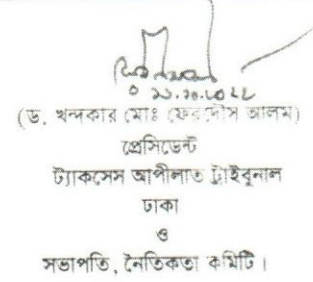 ১১.১০.২০২২
(ড. খন্দকার মোঃ ফেরদৌস আলম)
প্রেসিডেন্ট
ট্যাকসেস আপীলাত ট্রাইবুনাল
ঢাকা
ও
সভাপতি, নৈতিকতা কমিটি।